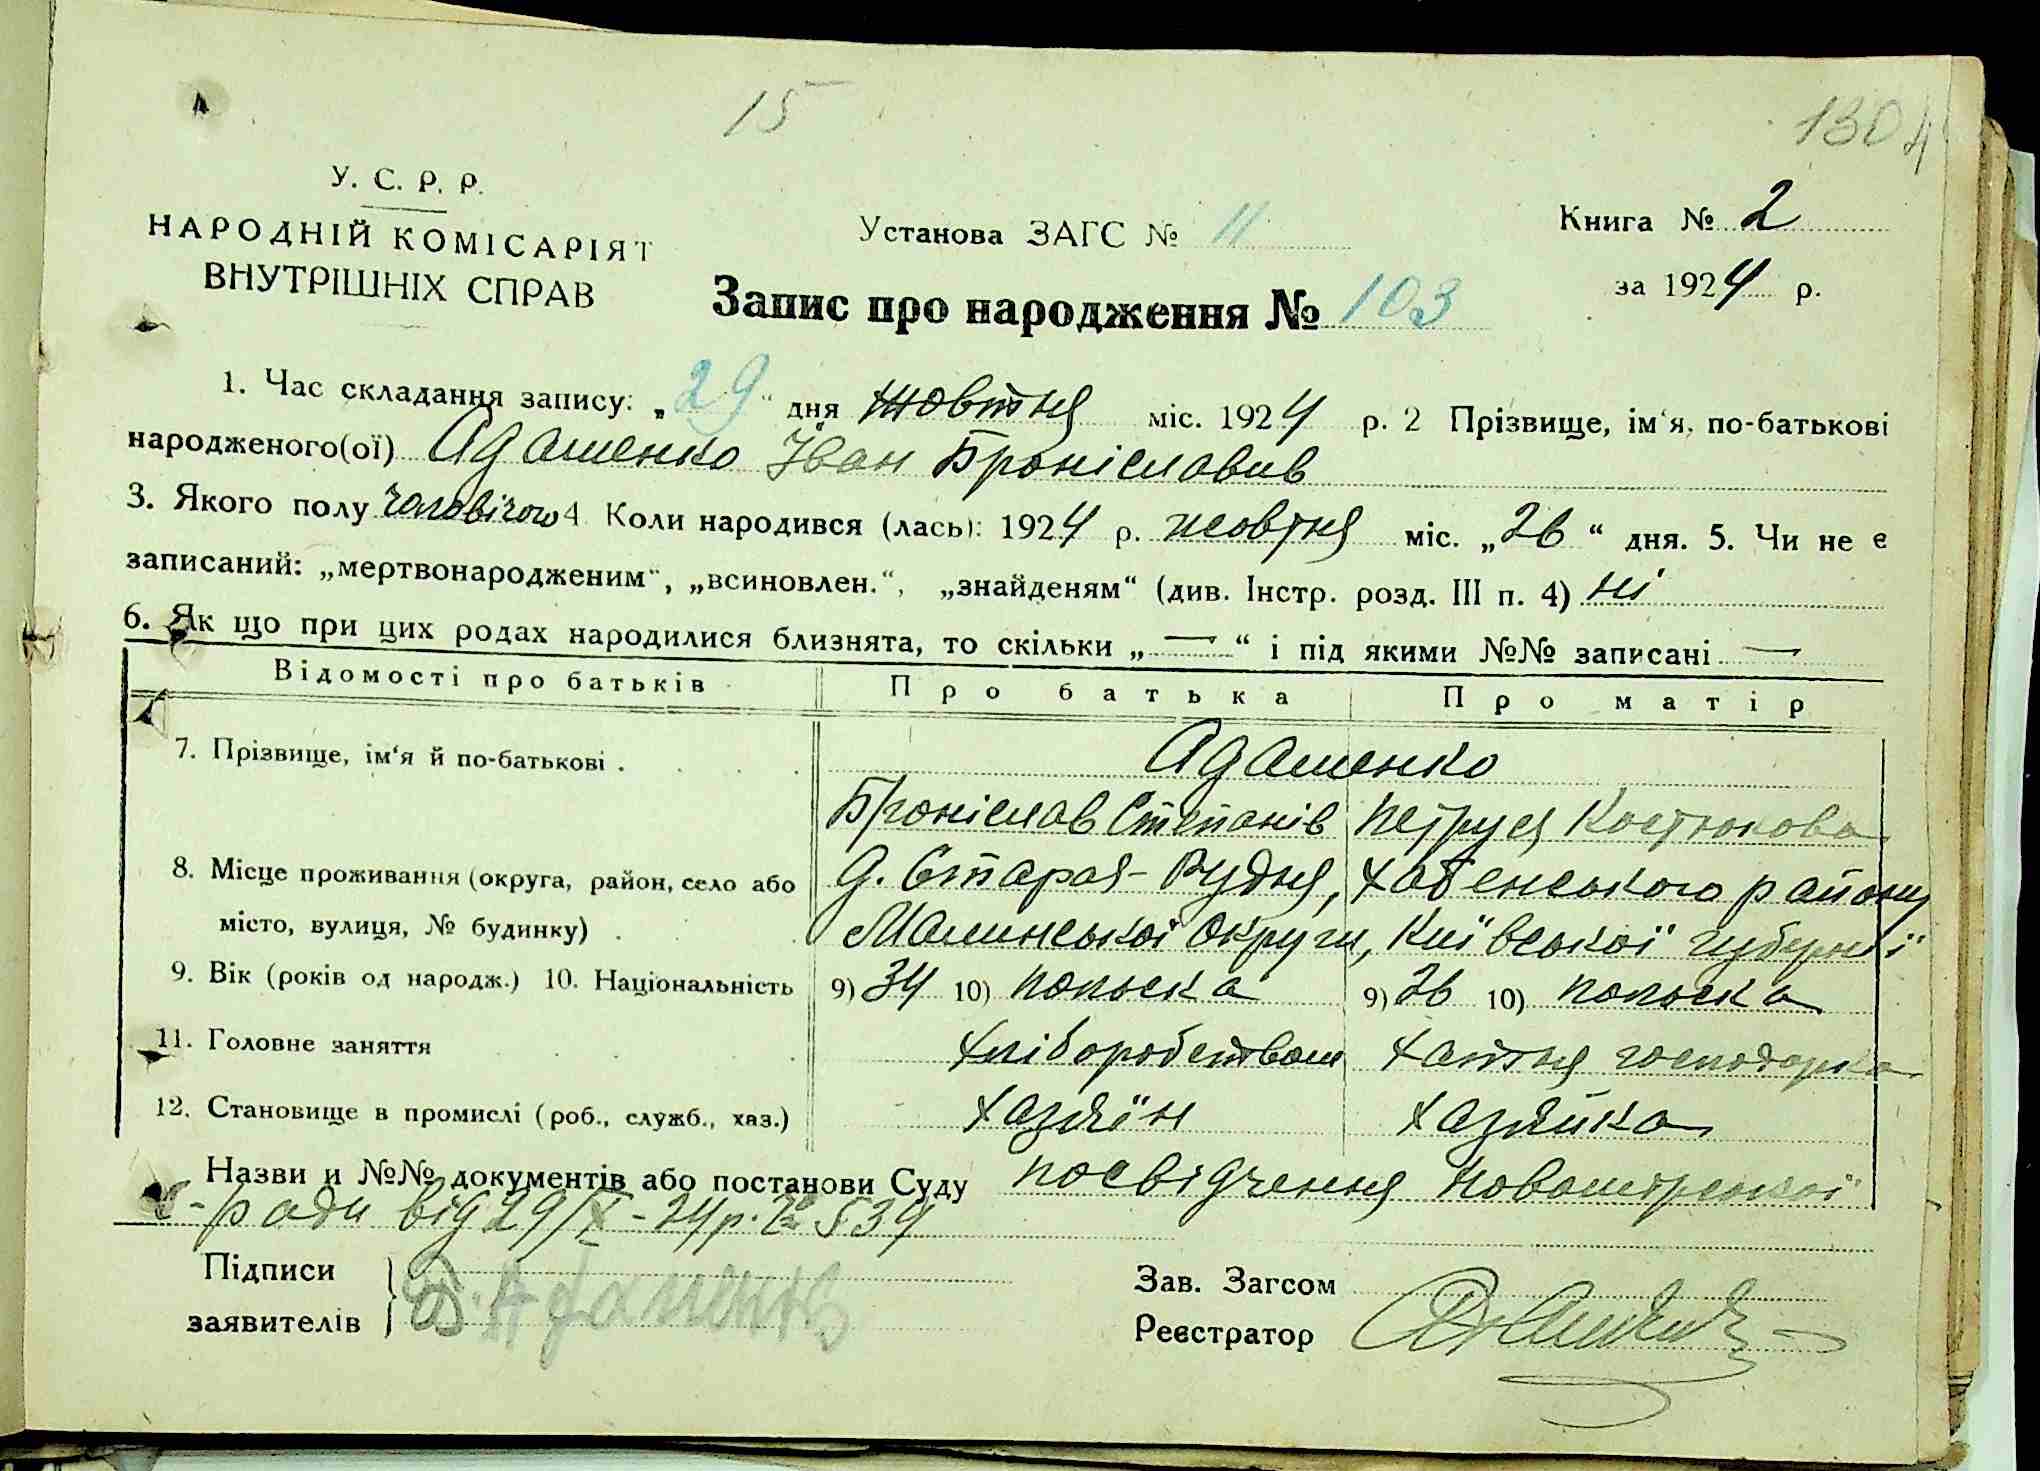 15
130
У. С. Р. Р.
НАРОДНІЙ КОМІСАРІЯТ
ВНУТРІШНІХ СПРАВ
Установа ЗАГС № 11
Книга № 2
за 1924 р.
Запис про народження № 103
1. Час складання запису: „29" дня жовтня міс. 1924 р. 2 Прізвище, ім'я, по-батькові
народженого(ої) Адашенко Іван Броніславів
3. Якого полу чоловічого 4. Коли народився (лась): 1924 р. жовтня міс. „26" дня. 5. Чи не є
записаний: „мертвонародженим", „всиновлен.", „знайденям" (див. Інстр. розд. III п. 4) ні
6. Як що при цих родах народилися близнята, то скільки „—" і під якими №№ записані —
Відомості про батьків Про батька Про матір
7. Прізвище, ім'я й по-батькові . Адашенко
Броніслав Степанів Петруся Костюкова
8. Місце проживання (округа, район, село або д. Старая-Рудня, Хабенського району
місто, вулиця, № будинку) . Малинської округи, Київської губернії
9. Вік (років од народж.) 10. Національність 9) 34 10) польска 9) 26 10) польска
11. Головне заняття хліборобством хатня господарка
12. Становище в промислі (роб., служб., хаз.) хазяїн хазяйка
Назви и №№ документів або постанови Суду посвідчення
с-ради від 29/X-24р. за № 534
Підписи
заявителів
Зав. Загсом
Реєстратор